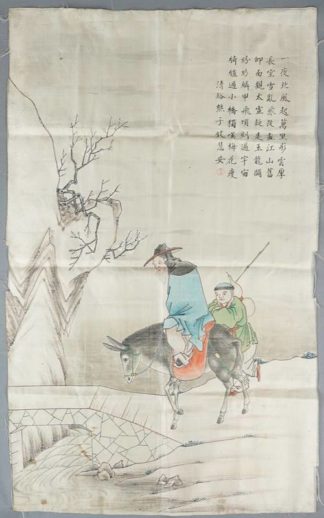 一夜北風起萬里彤雲厚
長空雪亂飄改盡江山舊
仰面觀太虛疑是玉龍鬭
紛紛鱗甲飛頃刻遍宇宙
騎驢過小橋獨嘆梅花瘦